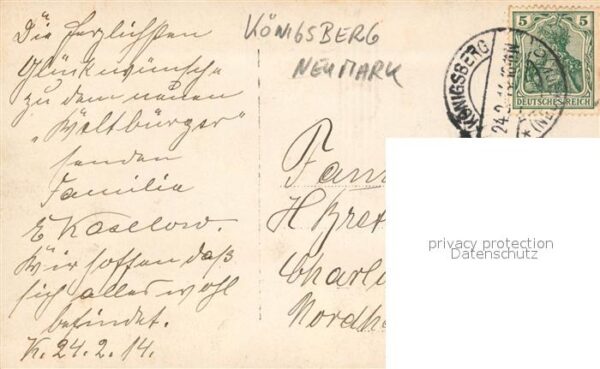 Die herzlichsten
Glückwünsche
zu dem neuen
„Weltbürger"
senden
Familie
E Kaselow.
Wir hoffen daß
sich alles wohl
befindet.
K. 24.2.14.
KÖNIGSBERG
NEUMARK
KÖNIGSBERG
24.2.14
5 5
DEUTSCHES REICH
Fam
H
Charlo
Nordh
privacy protection
Datenschutz